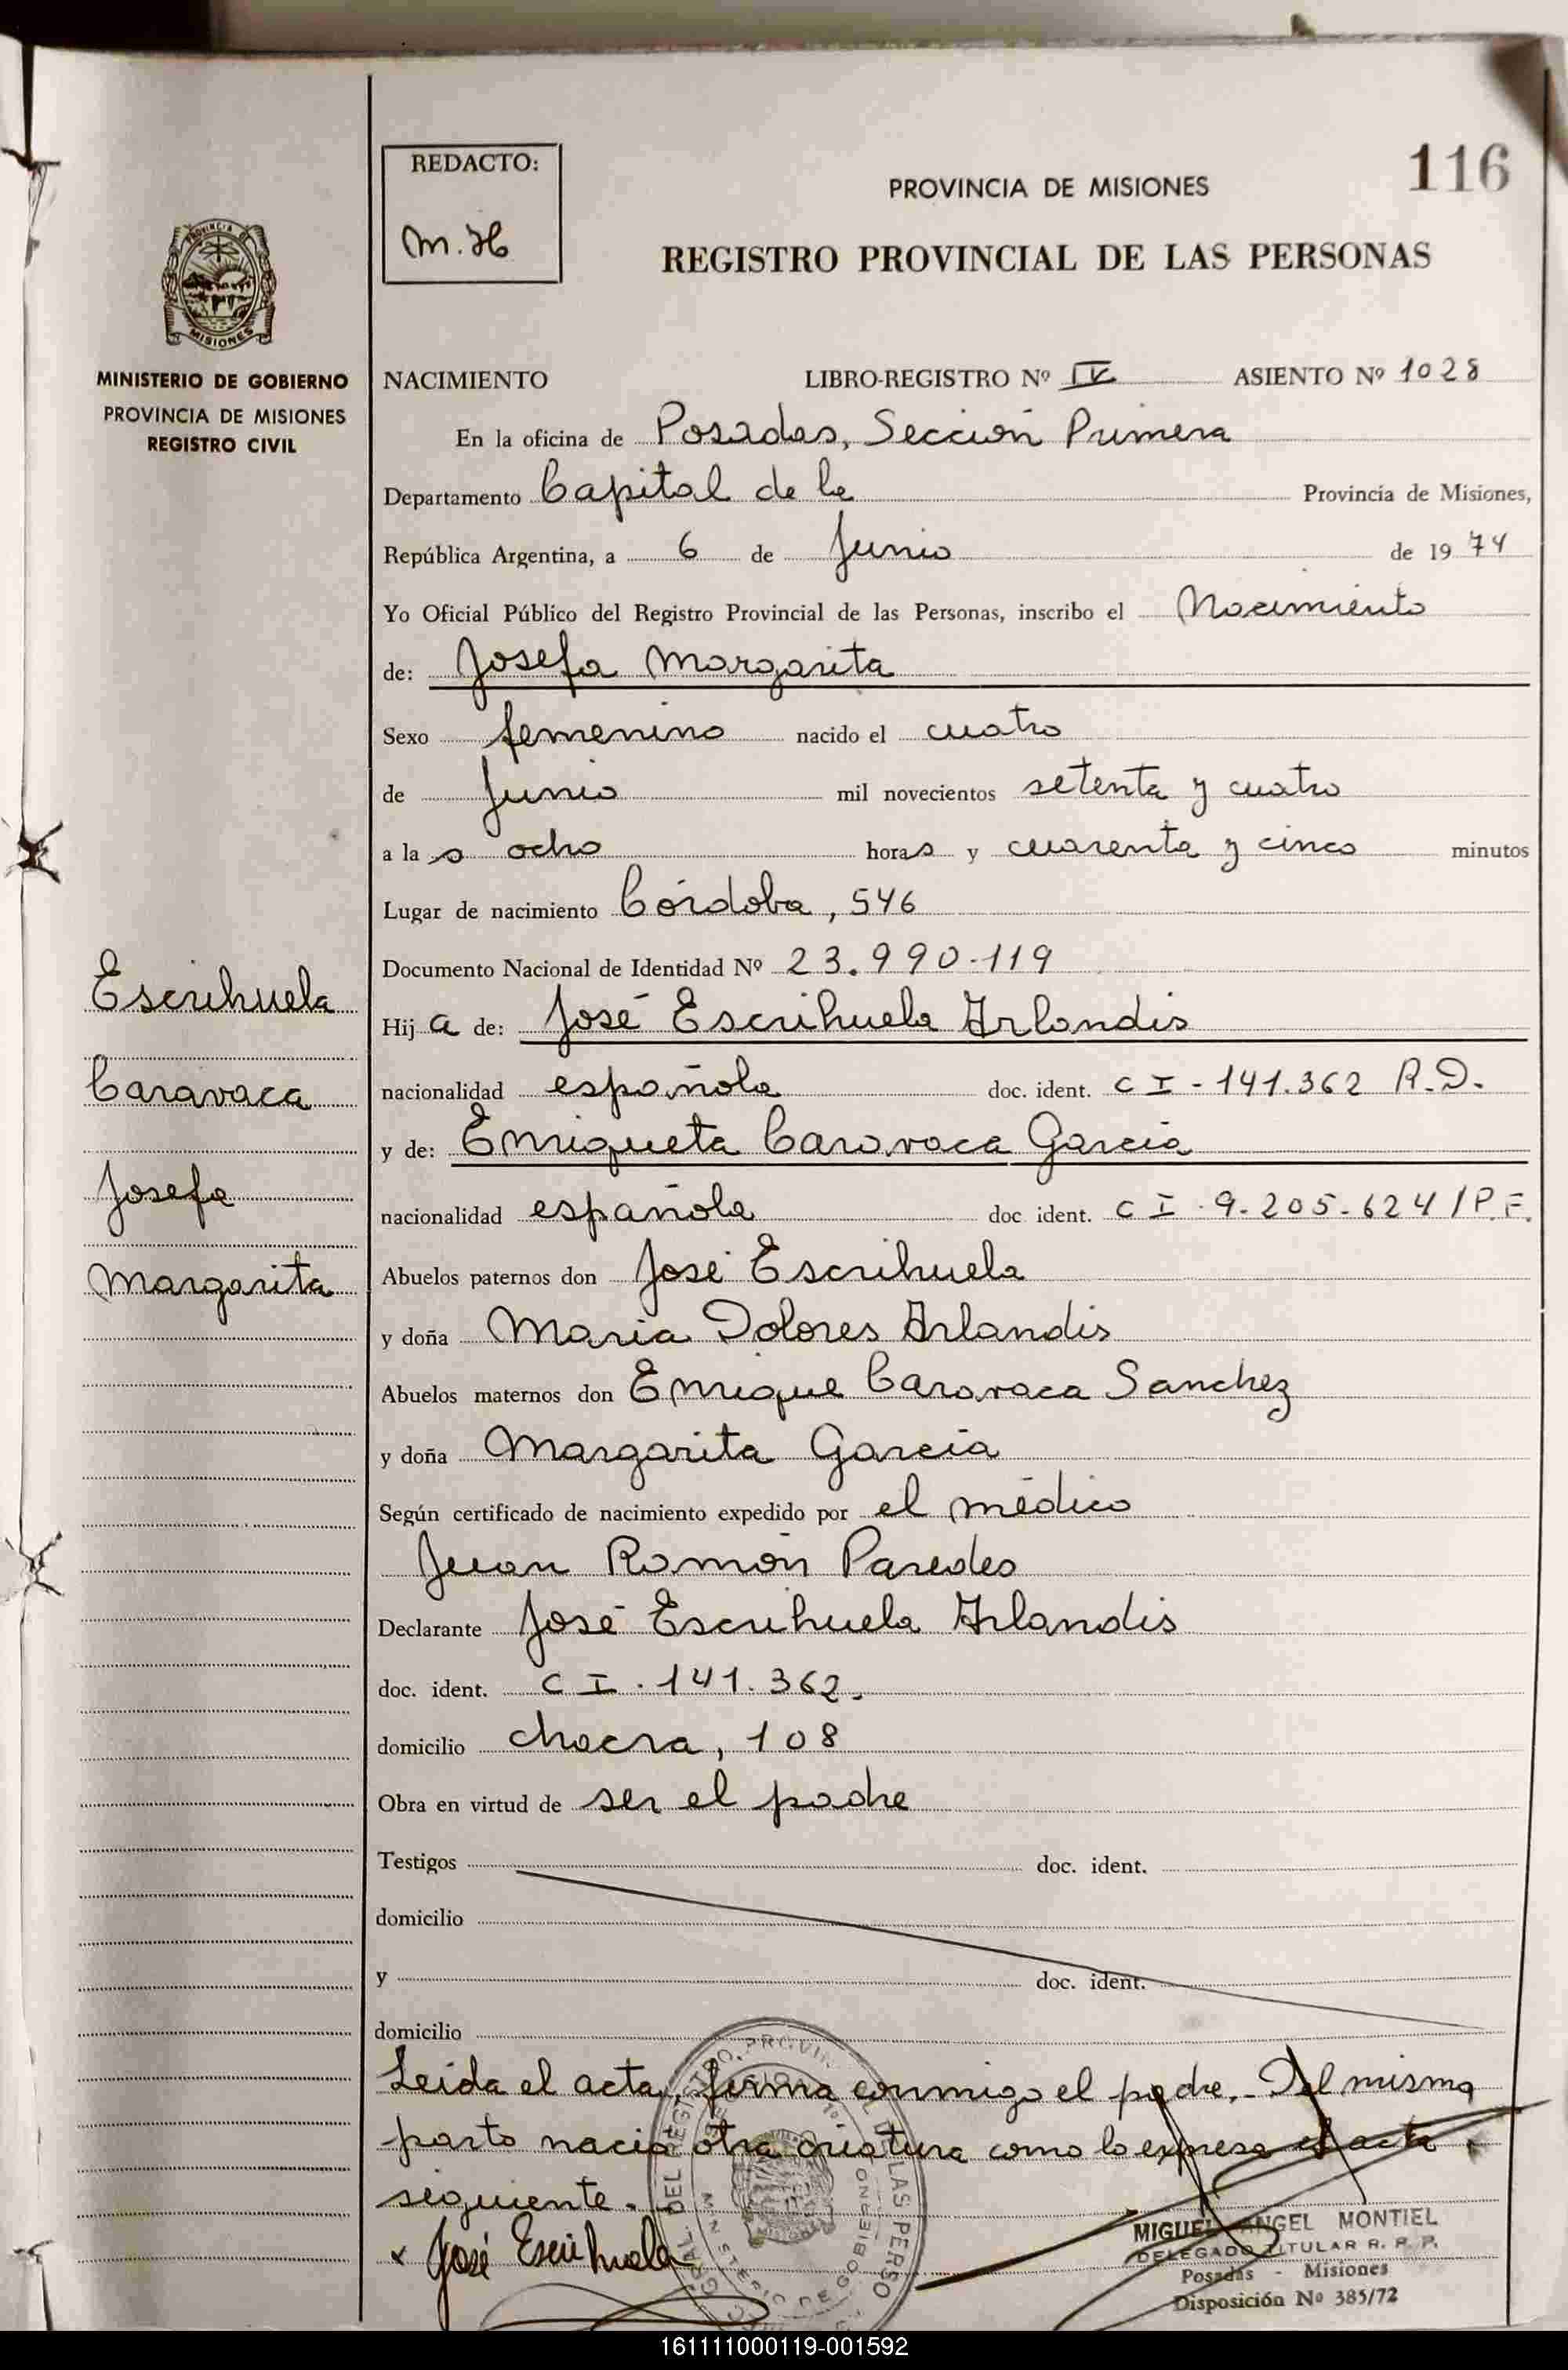 REDACTO:
M. H
PROVINCIA DE MISIONES
116
REGISTRO PROVINCIAL DE LAS PERSONAS
MISIONES
MINISTERIO DE GOBIERNO
PROVINCIA DE MISIONES
REGISTRO CIVIL
NACIMIENTO LIBRO-REGISTRO Nº IV ASIENTO Nº 1028
En la oficina de Posadas, Sección Primera
Departamento Capital de la Provincia de Misiones,
República Argentina, a 6 de Junio de 19 74
Yo Oficial Público del Registro Provincial de las Personas, inscribo el Nacimiento
de: Josefa Margarita
Sexo femenino nacido el cuatro
de Junio mil novecientos setenta y cuatro
a la s ocho horas y cuarenta y cinco minutos
Lugar de nacimiento Córdoba, 546
Documento Nacional de Identidad Nº 23.990.119
Escrihuela
Caravaca
Josefa
Margarita
Hij a de: José Escrihuela Arlandis
nacionalidad española doc. ident. C I - 141.362 R.D.
y de: Enriqueta Caravaca García
nacionalidad española doc ident. C I . 9.205.624 / P.F.
Abuelos paternos don José Escrihuela
y doña Maria Dolores Arlandis
Abuelos maternos don Enrique Caravaca Sanchez
y doña Margarita García
Según certificado de nacimiento expedido por el médico
Juan Ramón Paredes
Declarante José Escrihuela Arlandis
doc. ident. C I . 141.362.
domicilio chacra, 108
Obra en virtud de ser el padre
Testigos doc. ident.
domicilio
y doc. ident.
domicilio
Leida el acta, firma conmigo el padre.- Del mismo
parto nació otra criatura como lo expresa el acta
siguiente.
x José Escrihuela
MIGUEL ANGEL MONTIEL
DELEGADO TITULAR R. P. P.
Posadas - Misiones
Disposición Nº 385/72
161111000119-001592